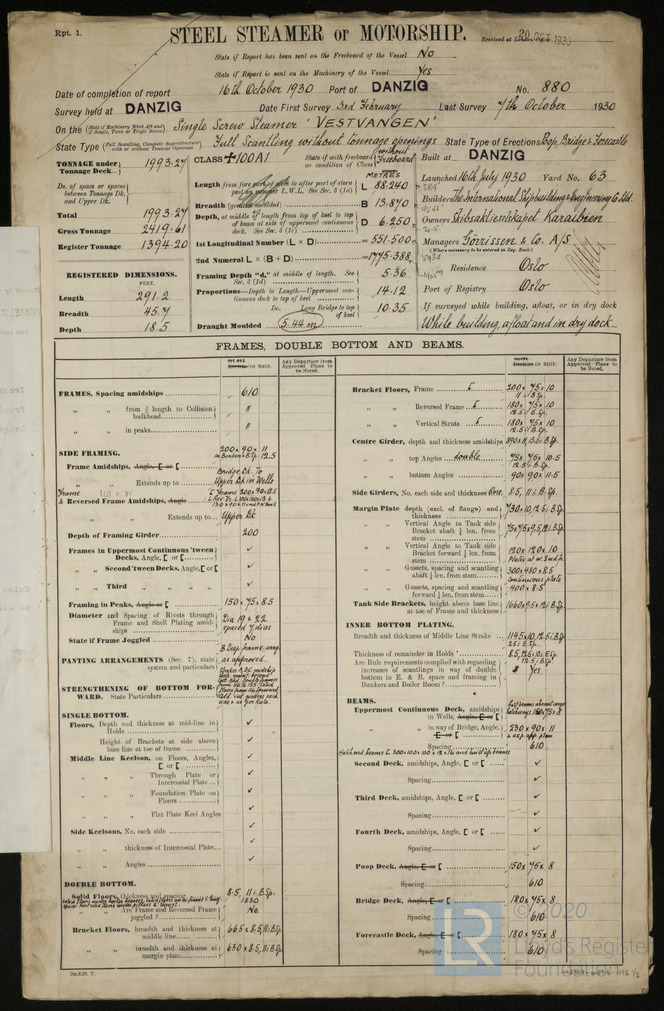 Rpt. 1.
STEEL STEAMER or MOTORSHIP.
Received at London Office 20 OCT 1930
State if Report has been sent on the Freeboard of the Vessel No
State if Report is sent on the Machinery of the Vessel Yes
Date of completion of report 16th October 1930 Port of DANZIG No. 880
Survey held at DANZIG Date First Survey 3rd February Last Survey 7th October 1930
On the Single Screw Steamer 'VESTVANGEN'
State Type Full Scantling without tonnage openings State Type of Erections Poop, Bridge & Forecastle
TONNAGE under Tonnage Deck 1993.27
Do. of space or spaces between Tonnage Dk. and Upper Dk.
Total 1993.27
Gross Tonnage 2419.61
Register Tonnage 1394.20
REGISTERED DIMENSIONS.
FEET.
Length 291.2
Breadth 45.7
Depth 18.5
CLASS +100A1 State if with freeboard as condition of Class without freeboard
METRES
Length from fore part of stem to after part of stern post on summer L.W.L. See Sec. 3 (1a) L 88.240
Breadth (greatest moulded) B 13.870
Depth, at middle of length from top of keel to top of beam at side of uppermost continuous deck. See Sec. 3 (1c) D 6.250
1st Longitudinal Number (L × D) = 551.500
2nd Numeral L × (B + D) = 1775.388
Framing Depth "d," at middle of length. See Sec. 3 (1d) 5.36
Proportions—Depth to Length—Uppermost continuous deck to top of keel 14.12
Do. Long Bridge to top of keel 10.35
Draught Moulded 5.44 m
Built at DANZIG
Launched 16th July 1930 Yard No. 63
Builders The International Shipbuilding & Engineering Co. Ltd.
Owners Skibsaktieselskapet Karaibien
Managers Gorrissen & Co. A/S
(Where necessary to be entered in Reg. Book.)
Residence Oslo
Port of Registry Oslo
If surveyed while building, afloat, or in dry dock
While building, afloat and in dry dock
FRAMES, DOUBLE BOTTOM AND BEAMS.
Any Departure from Approved Plans to be Noted.
FRAMES, Spacing amidships 610
" " from ⅗ length to Collision bulkhead "
" " in peaks "
SIDE FRAMING.
200 × 90 × 11
Frame Amidships, Angle, E or [
" " Extends up to Bridge Dk. To Upper Dk in Wells
Reversed Frame Amidships, Angle
" " Extends up to Upper Dk
Depth of Framing Girder 200
Frames in Uppermost Continuous 'tween Decks, Angle, [ or [ ✓
" Second 'tween Decks, Angle, [ or [ ✓
" Third " " ✓
Framing in Peaks, Angle or [ 150 × 75 × 8.5
Diameter and Spacing of Rivets through Frame and Shell Plating amidships Dia 19 & 22 spaced 7 dias
State if Frame Joggled No
PANTING ARRANGEMENTS (Sec. 7), state system and particulars as approved
STRENGTHENING OF BOTTOM FORWARD. State Particulars
SINGLE BOTTOM.
Floors, Depth and thickness at mid-line in Holds ✓
Height of Brackets at side above base line at toe of frame ✓
Middle Line Keelson, on Floors, Angles, [ or [ ✓
" " Through Plate or Intercostal Plate ✓
" " Foundation Plate on Floors ✓
" " Flat Plate Keel Angles ✓
Side Keelsons, No. each side ✓
" " thickness of Intercostal Plate ✓
" " Angles ✓
DOUBLE BOTTOM.
Solid Floors, thickness and spacing 8.5, 11 i. B.Sp. 1830
" " Are Frame and Reversed Frame joggled? No
Bracket Floors, breadth and thickness at middle line 665 × 8.5, 11 i. B.Sp.
" " breadth and thickness at margin plate 630 × 8.5, 11 i. B.Sp.
Bracket Floors, Frame 200 × 75 × 10
" " Reversed Frame 180 × 75 × 10
12.5 i. B.Sp.
" " Vertical Struts 180 × 75 × 10
12.5 i. B.Sp.
Centre Girder, depth and thickness amidships
" " top Angles double 75 × 75 × 10.5
12.5 i. B.Sp.
" " bottom Angles 90 × 90 × 11.5
Side Girders, No. each side and thickness One. 8.5, 11 i. B.Sp.
Margin Plate depth (excl. of flange) and thickness 730 × 10, 12.5 i. B.Sp.
" " Vertical Angle to Tank side Bracket abaft ¼ len. from stem 75 × 75 × 9.5, 12 i. B.Sp.
" " Vertical Angle to Tank side Bracket forward ¼ len. from stem 120 × 120 × 10
" " Gussets, spacing and scantling abaft ¼ len. from stem 300 × 480 × 8.5
" " Gussets, spacing and scantling forward ¼ len. from stem continuous plate 400 × 8.5
Tank Side Brackets, height above base line at toe of Frame and thickness 1660 × 9.5, 12 i. B.Sp.
INNER BOTTOM PLATING.
Breadth and thickness of Middle Line Strake 1145 × 10, 12.5 i. B.Sp.
Thickness of remainder in Holds
Are Rule requirements complied with regarding increases of scantlings in way of double bottom in E. & B. space and framing in Bunkers and Boiler Room? Yes
BEAMS.
Uppermost Continuous Deck, amidships in Wells, Angle, E or [
" " in way of Bridge, Angle, E or [ 230 × 90 × 11
Spacing 610
Second Deck, amidships, Angle, [ or [ ✓
Spacing ✓
Third Deck, amidships, Angle, [ or [ ✓
Spacing ✓
Fourth Deck, amidships, Angle, [ or [ ✓
Spacing ✓
Poop Deck, Angle, E or [ 150 × 75 × 8
Spacing 610
Bridge Deck, Angle, E or [ 180 × 75 × 8
Spacing 610
Forecastle Deck, Angle, E or [ 180 × 75 × 8
Spacing 610
LR
© 2020
Lloyd's Register
Foundation